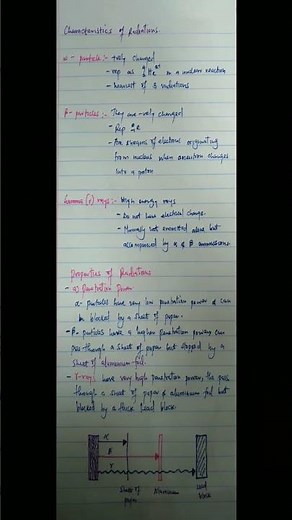 Characteristics of Radiations
α- particle:- +vely charged
- rep as ⁴₂He²⁺ in a nuclear reaction
- heaviest of 3 radiations
β- particles:- They are -vely charged
- Rep ⁰₋₁e
- Are streams of electrons originating
from nucleus when a neutron changes
into a proton
Gamma (γ) rays:- High energy rays
- Do not have electrical charge.
- Normally not emitted alone but
accompanied by α & β emissions
Properties of Radiations
- a) Penetration Power
α- particles have very low penetration power & can
be blocked by a sheet of paper.
- β- particles have a higher penetration power, can
pass through a sheet of paper but stopped by a
sheet of aluminium foil.
- γ-rays have very high penetration power, the pass
through a sheet of paper & aluminium foil but
blocked by a thick Lead block.
α
β
γ
sheet of
paper
Aluminium
Lead
block